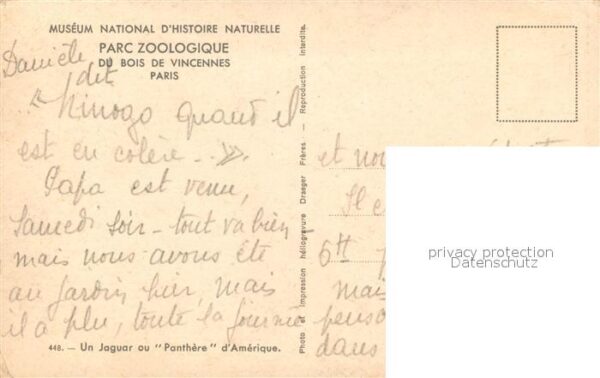 MUSÉUM NATIONAL D'HISTOIRE NATURELLE
PARC ZOOLOGIQUE
DU BOIS DE VINCENNES
PARIS
Danièle
dit
" quand il
est en colère - . »
Papa est venu,
Samedi soir - tout va bien -
mais nous avons été
au jardin hier, mais
il a plu, toute la journée
448. — Un Jaguar ou "Panthère" d'Amérique.
Photo et Impression héliogravure Draeger Frères. — Reproduction interdite.
et
Il
mais
dans
privacy protection
Datenschutz